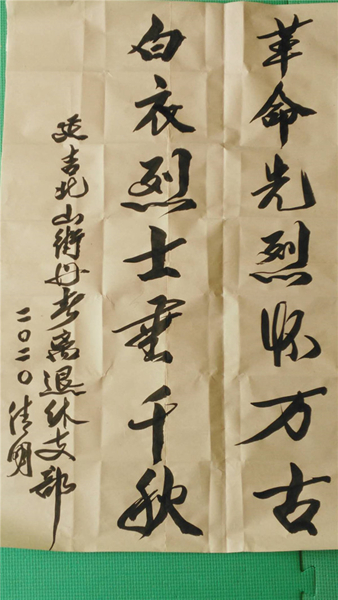 革命先烈万古
白衣烈士垂千秋
延吉北山街丹离退休支部
二〇二〇清明